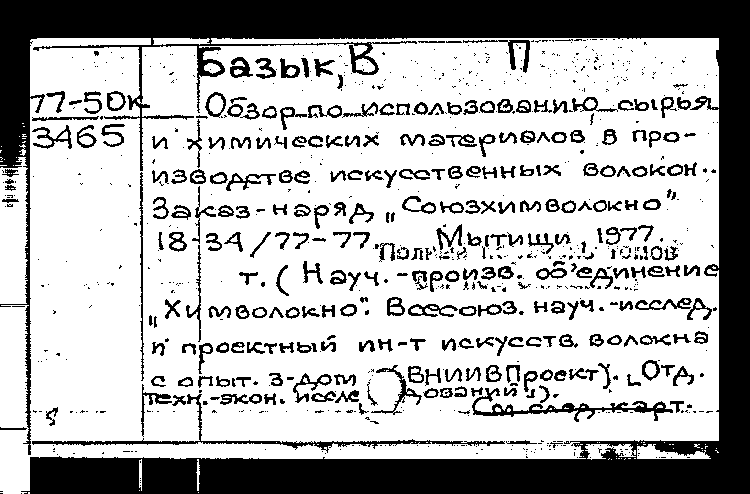 Базык, В П
77-50к Обзор по использованию сырья
3465 и химических материалов в про-
изводстве искусственных волокон..
Заказ-наряд „Союзхимволокно"
18-34/77-77. Мытищи, 1977.
Полный томов
т. (Науч.-произв. об'единение
„Химволокно". Всесоюз. науч.-исслед.
и проектный ин-т искусств. волокна
с опыт. з-дом (ВНИИВПроект). Отд.
техн.-экон. исследований").
См след. карт.